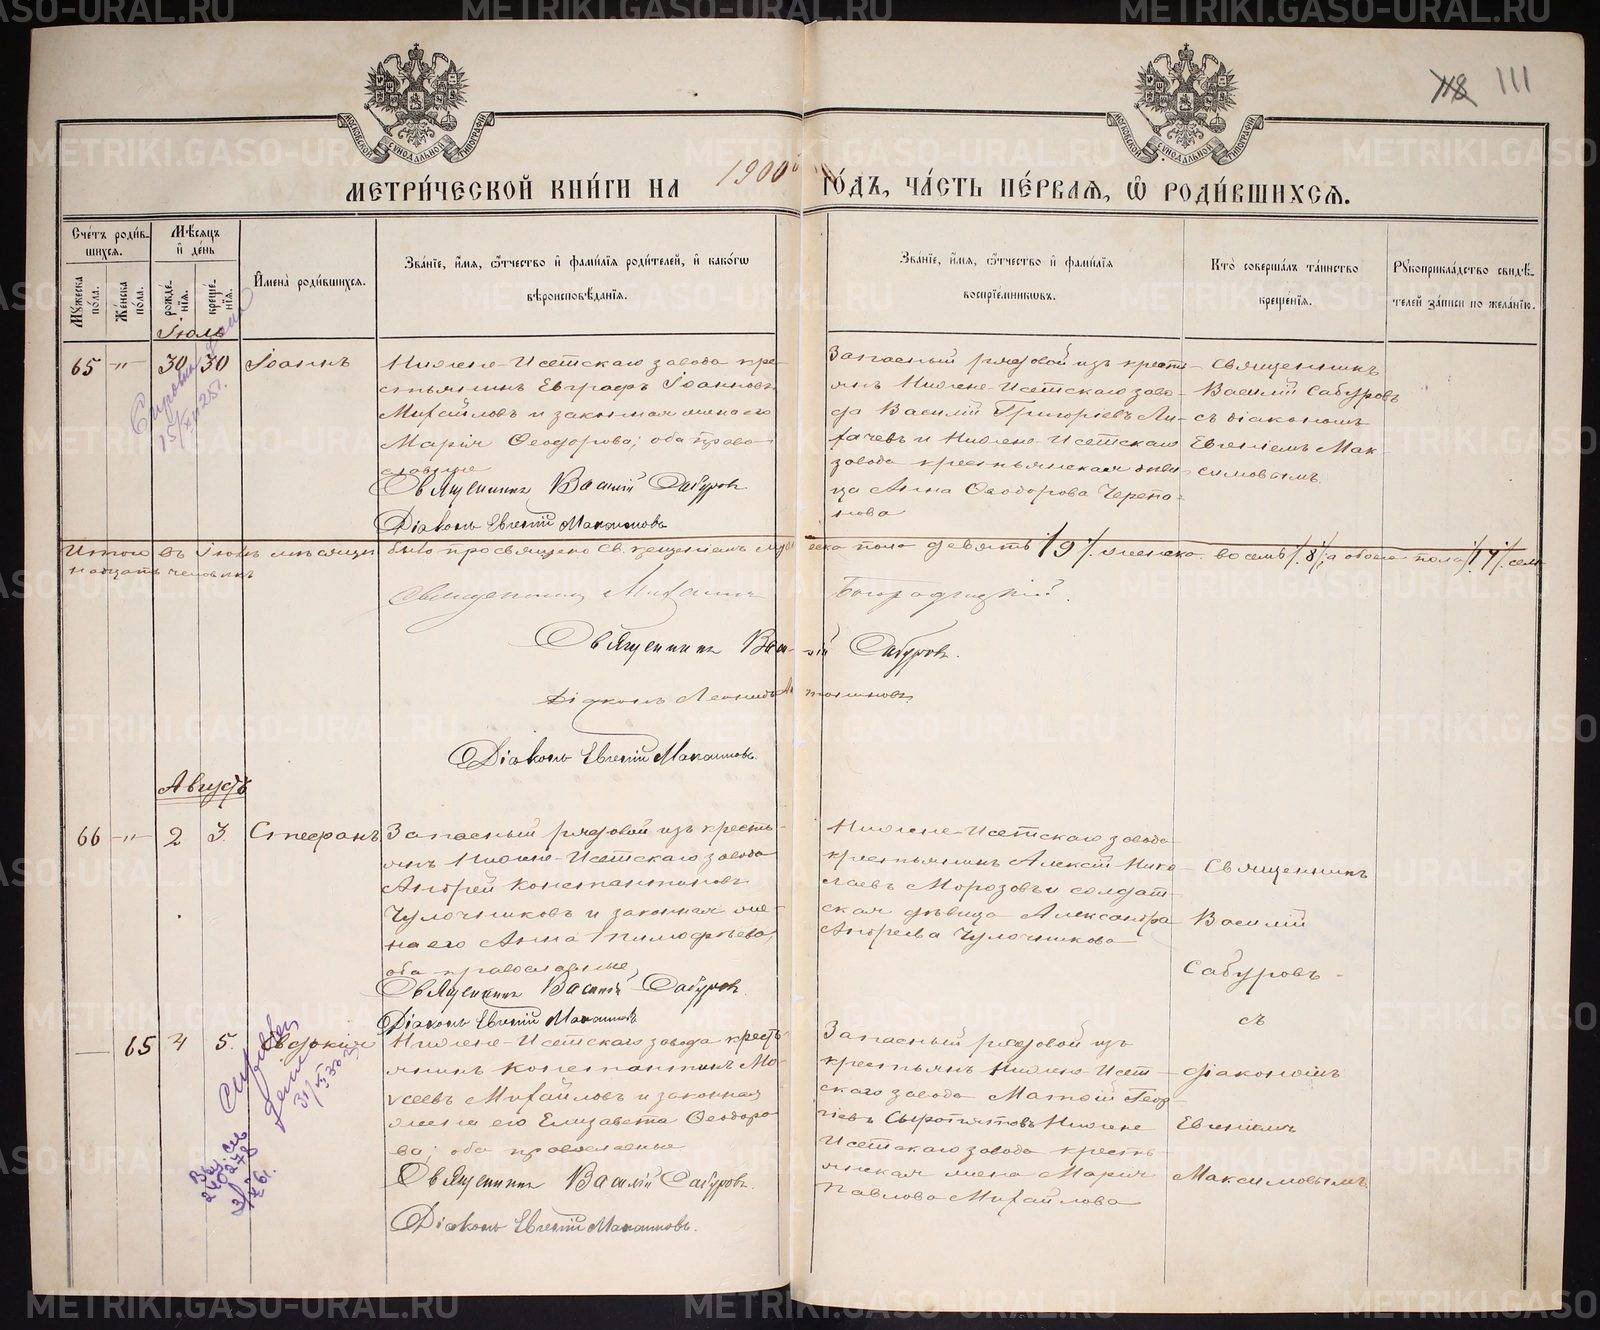 118 111
МЕТРИ́ЧЕСКОЙ КНИ́ГИ НА 1900й ГО́ДЪ, ЧА́СТЬ ПЕ́РВАЯ, Ѿ РОДИ́ВШИХСЯ.
Сче́тъ роди́в-
шихся.
Му́жеска по́ла.
Же́нска по́ла.
Мѣ́сяцъ
и҆ де́нь
рожде́-
нїя.
креще́-
нїя.
И҆мена̀ роди́вшихся.
Зва́нїе, и҆́мя, ѻ҆́тчество и҆ фами́лїя роди́телей, и҆ како́гѡ
вѣроисповѣ́данїя.
Зва́нїе, и҆́мя, ѻ҆́тчество и҆ фами́лїя
воспрїе́мниковъ.
Кто̀ соверша́лъ та́инство
креще́нїя.
Рꙋкоприкла́дство свидѣ́-
телей за́писи по жела́нїю.
Іюль
65 -"- 30 30 Іоаннъ
Нижне-Исетскаго завода кре-
стьянинъ Евграфъ Іоанновъ
Михайловъ и законная жена его
Марія Ѳеодорова; оба право-
славные
Священникъ Василій Сабуровъ
Діаконъ Евгеній Максимовъ
Запасный рядовой изъ крестьянъ
Нижне-Исетскаго заво-
да Василій Григоріевъ Ли-
хачевъ и Нижне-Исетскаго
завода крестьянская дѣви-
ца Анна Ѳеодорова Черепа-
нова
Священникъ
Василій Сабуровъ
съ діакономъ
Евгеніемъ Мак-
симовымъ.
Итого въ Іюлѣ мѣсяцѣ было просвящено Св. крещеніемъ мужеска пола девять /9/. женска восемь /8/, а обоего пола /17/. сем-
надцать человѣкъ
Священникъ Михаилъ Богородицкій.
Священникъ Василій Сабуровъ.
Діаконъ Леонидъ
Діаконъ Евгеній Максимовъ.
Августъ
66 -"- 2 3. Стефанъ
Запасный рядовой изъ кресть-
янъ Нижне-Исетскаго завода
Андрей Константиновъ
Чулочниковъ и законная же-
на его Анна Тимофѣева,
оба православные
Священникъ Василій Сабуровъ.
Діаконъ Евгеній Максимовъ
Нижне-Исетскаго завода
крестьянинъ Алексѣй Нико-
лаевъ Морозовъ и солдат-
ская дѣвица Александра
Андреева Чулочникова
Священникъ
Василій
Сабуровъ -
съ
діакономъ
Евгеніемъ
Максимовымъ
— 65 4 5. Евдокія
Нижне-Исетскаго завода кресть-
янинъ Константинъ Мо-
исеевъ Михайловъ и законная
жена его Елизавета Ѳеодоро-
ва; оба православные
Священникъ Василій Сабуровъ.
Діаконъ Евгеній Максимовъ.
Запасный рядовой изъ
крестьянъ Нижне-Исет-
скаго завода Матѳій Геор-
гіевъ Сыропятовъ и Нижне
Исетскаго завода кресть-
янская жена Марія
Павлова Михайлова
METRIKI.GASO-URAL.RU